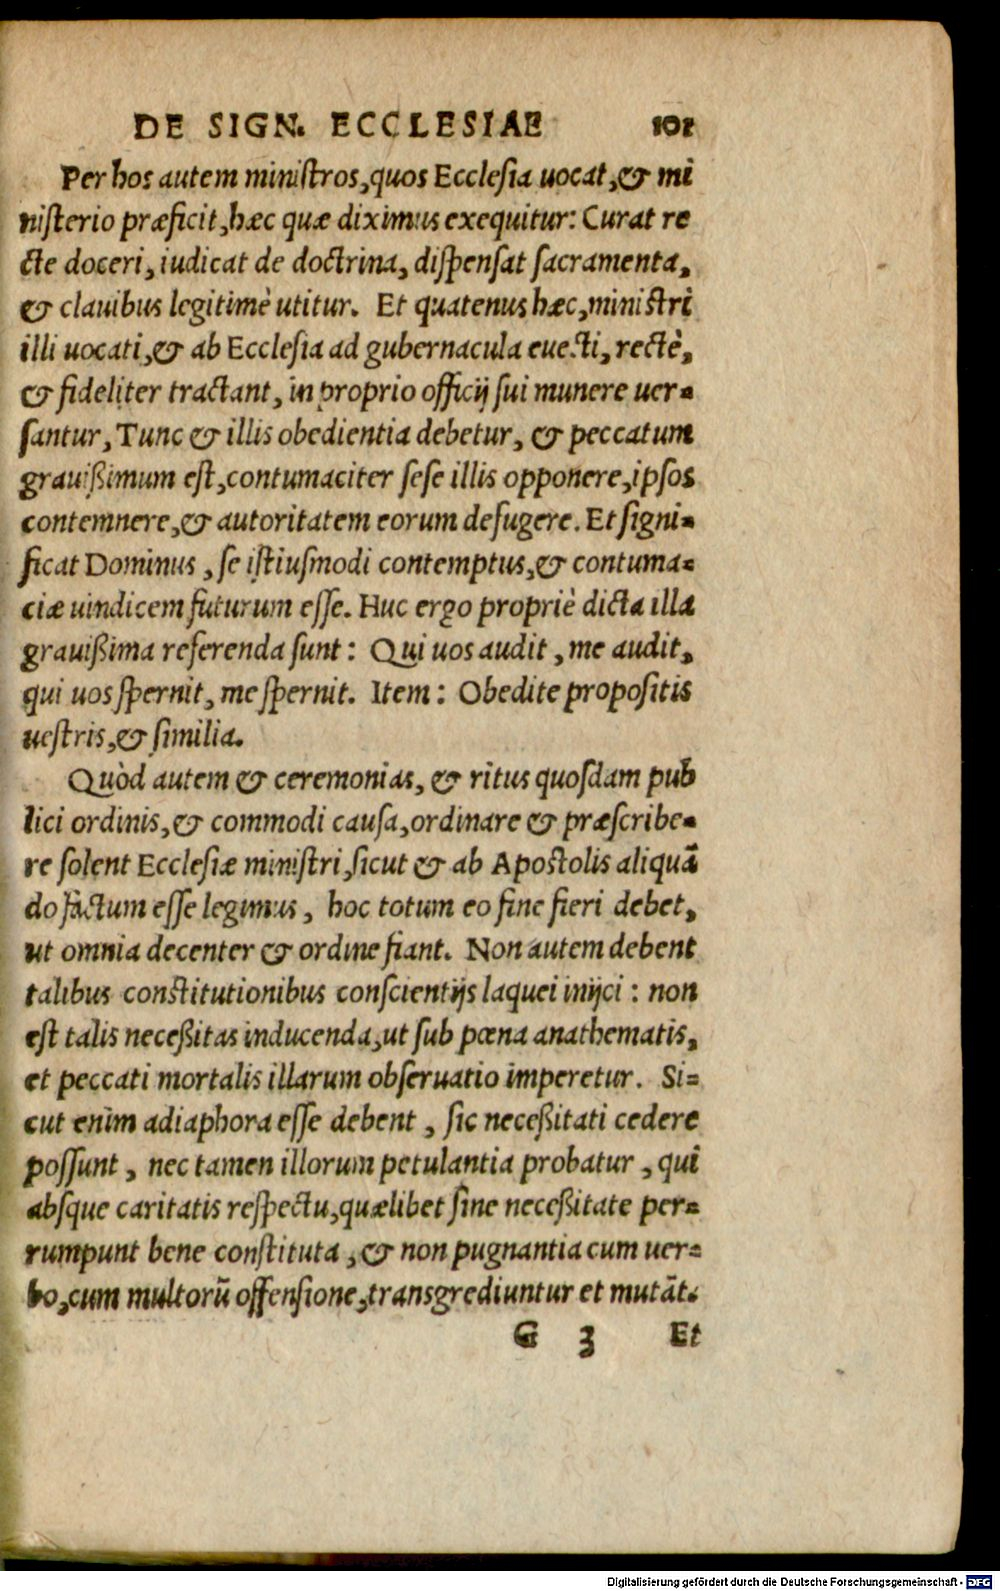 DE SIGN. ECCLESIAE 101
Per hos autem miniſtros, quos Eccleſia uocat, & mi
niſterio præficit, hæc quæ diximus exequitur: Curat re
cte doceri, iudicat de doctrina, diſpenſat ſacramenta,
& clauibus legitimè utitur. Et quatenus hæc, miniſtri
illi uocati, & ab Eccleſia ad gubernacula euecti, rectè,
& fideliter tractant, in proprio officij ſui munere uer-
ſantur, Tunc & illis obedientia debetur, & peccatum
grauißimum eſt, contumaciter ſeſe illis opponere, ipſos
contemnere, & autoritatem eorum defugere. Et ſigni-
ficat Dominus, ſe iſtiuſmodi contemptus, & contuma-
ciæ uindicem futurum eſſe. Huc ergo propriè dicta illa
grauißima referenda ſunt: Qui uos audit, me audit,
qui uos ſpernit, me ſpernit. Item: Obedite propoſitis
ueſtris, & ſimilia.
Quòd autem & ceremonias, & ritus quoſdam pub
lici ordinis, & commodi cauſa, ordinare & præſcribe-
re ſolent Eccleſiæ miniſtri, ſicut & ab Apoſtolis aliquã
do factum eſſe legimus, hoc totum eo fine fieri debet,
ut omnia decenter & ordine fiant. Non autem debent
talibus conſtitutionibus conſcientijs laquei inijci: non
eſt talis neceßitas inducenda, ut ſub pœna anathematis,
et peccati mortalis illarum obſeruatio imperetur. Si-
cut enim adiaphora eſſe debent, ſic neceßitati cedere
poſſunt, nec tamen illorum petulantia probatur, qui
abſque caritatis reſpectu, quælibet ſine neceßitate per-
rumpunt bene conſtituta, & non pugnantia cum uer-
bo, cum multorũ offenſione, transgrediuntur et mutãt.
G 3 Et
Digitalisierung gefördert durch die Deutsche Forschungsgemeinschaft - DFG